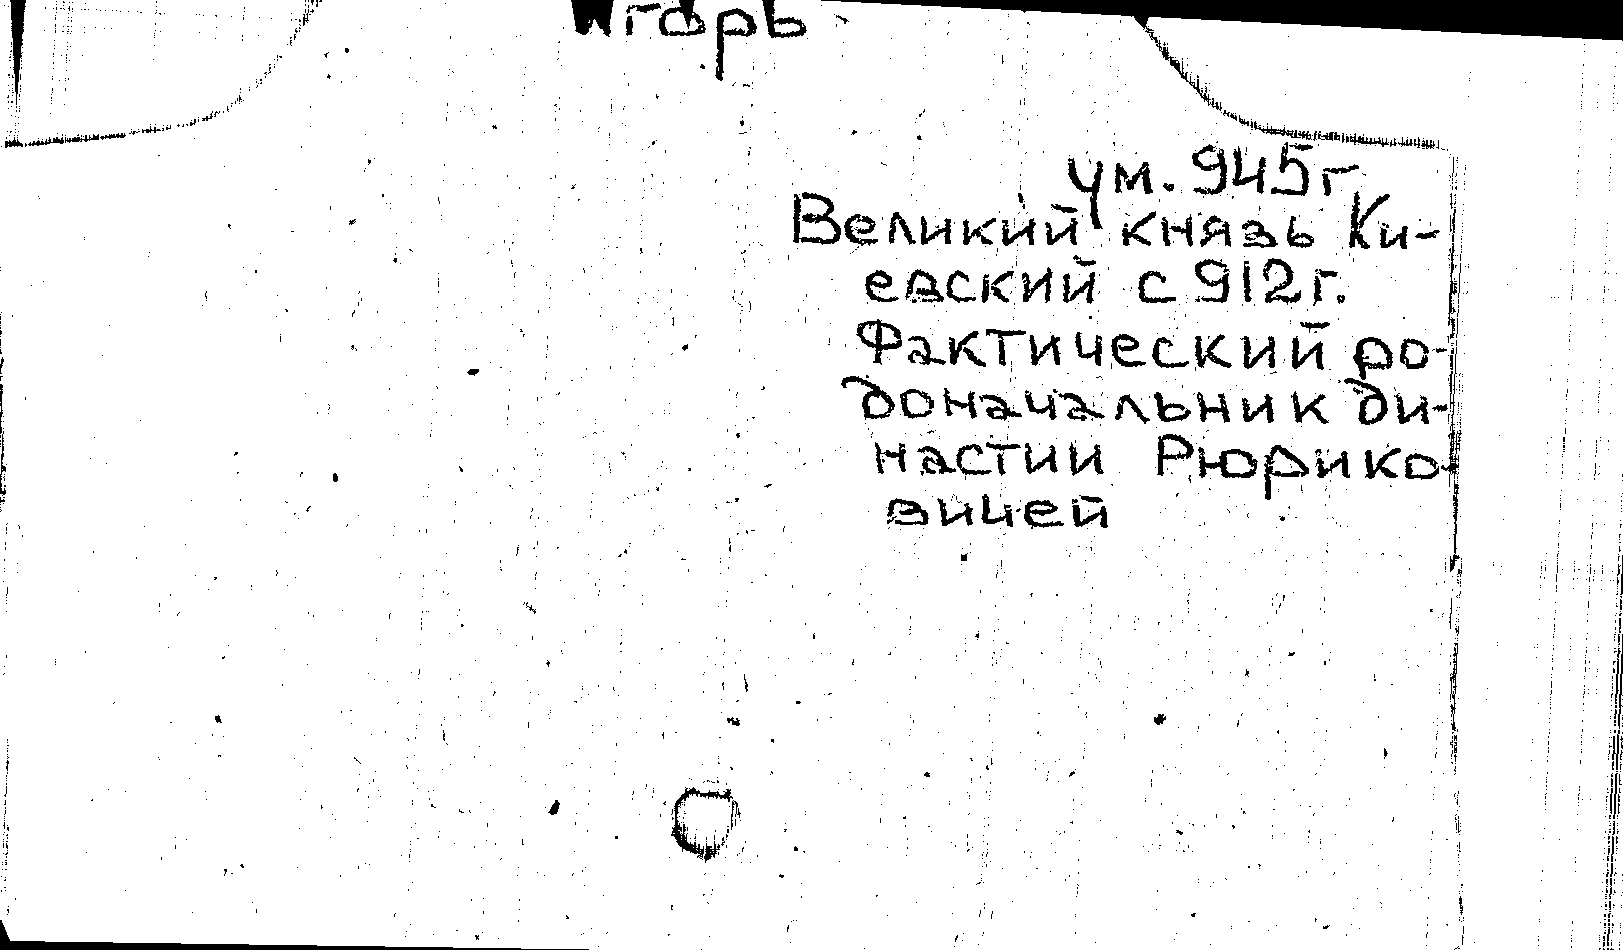 Игорь
ум. 945г.
Великий князь Ки-
евский с 912г.
Фактический ро-
доначальник ди-
настии Рюрико-
вичей